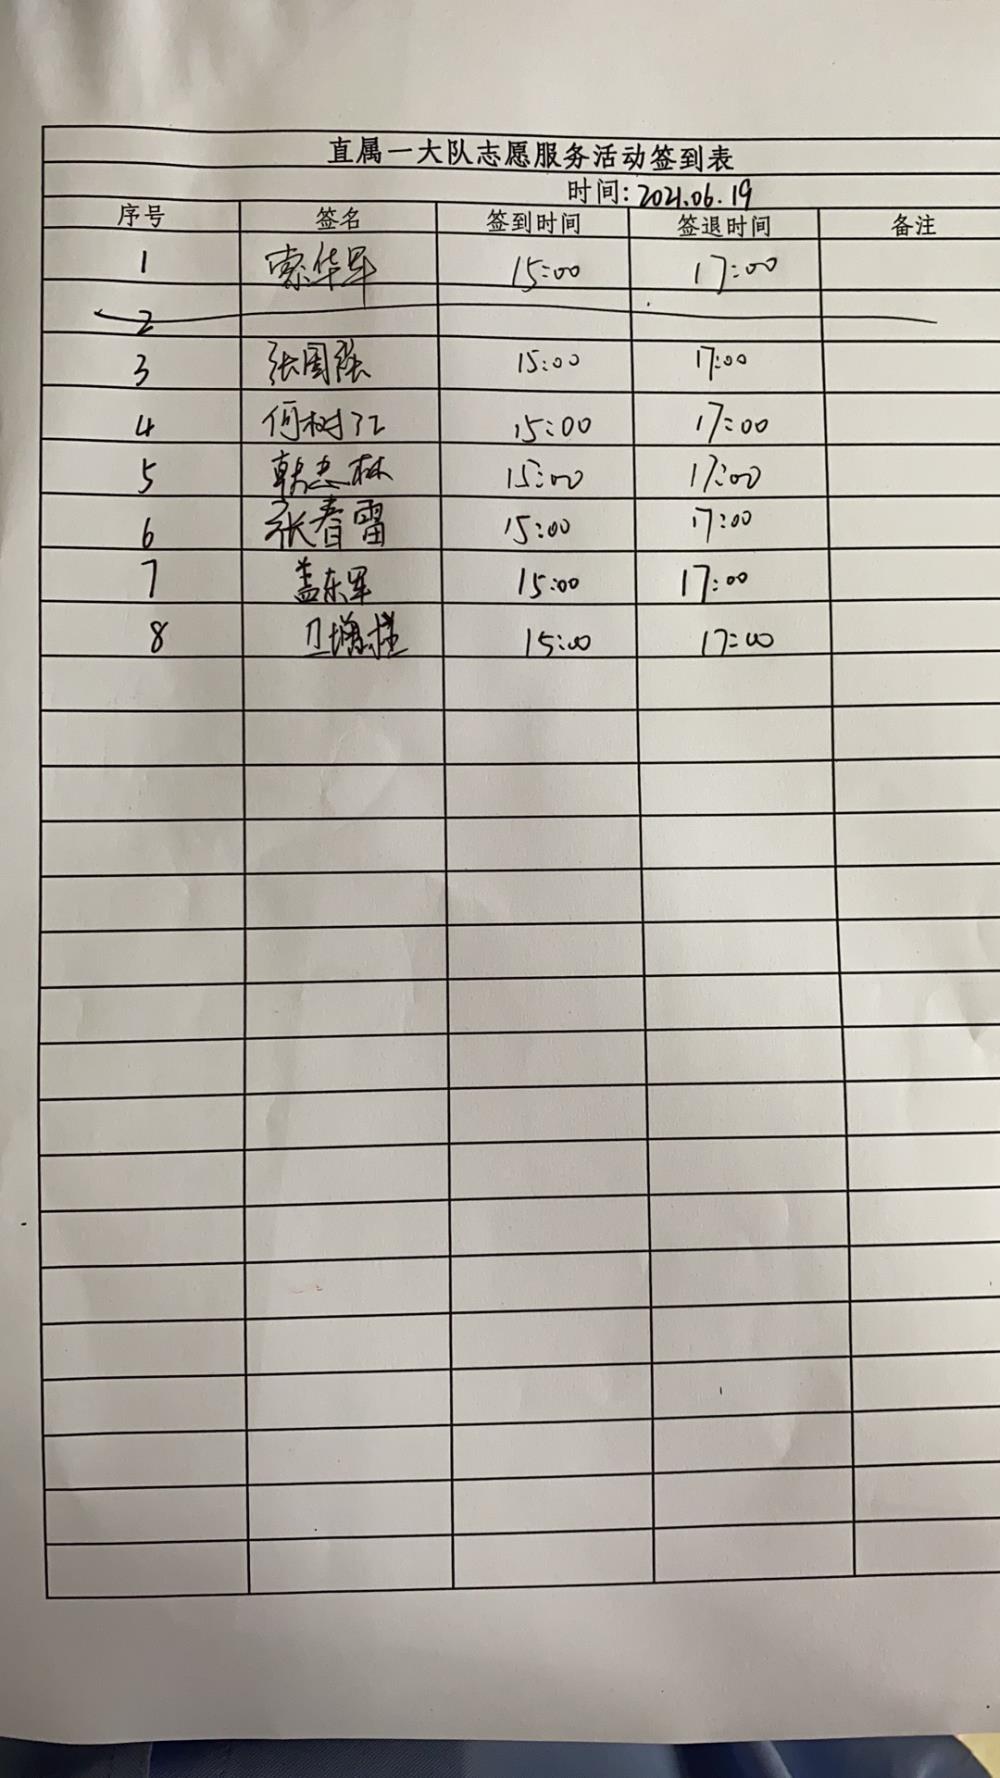 直属一大队志愿服务活动签到表
时间:2021.06.19
序号 签名 签到时间 签退时间 备注
1 索华军 15:00 17:00
2
3 张国强 15:00 17:00
4 何树江 15:00 17:00
5 韩志林 15:00 17:00
6 张春雷 15:00 17:00
7 盖东军 15:00 17:00
8 15:00 17:00